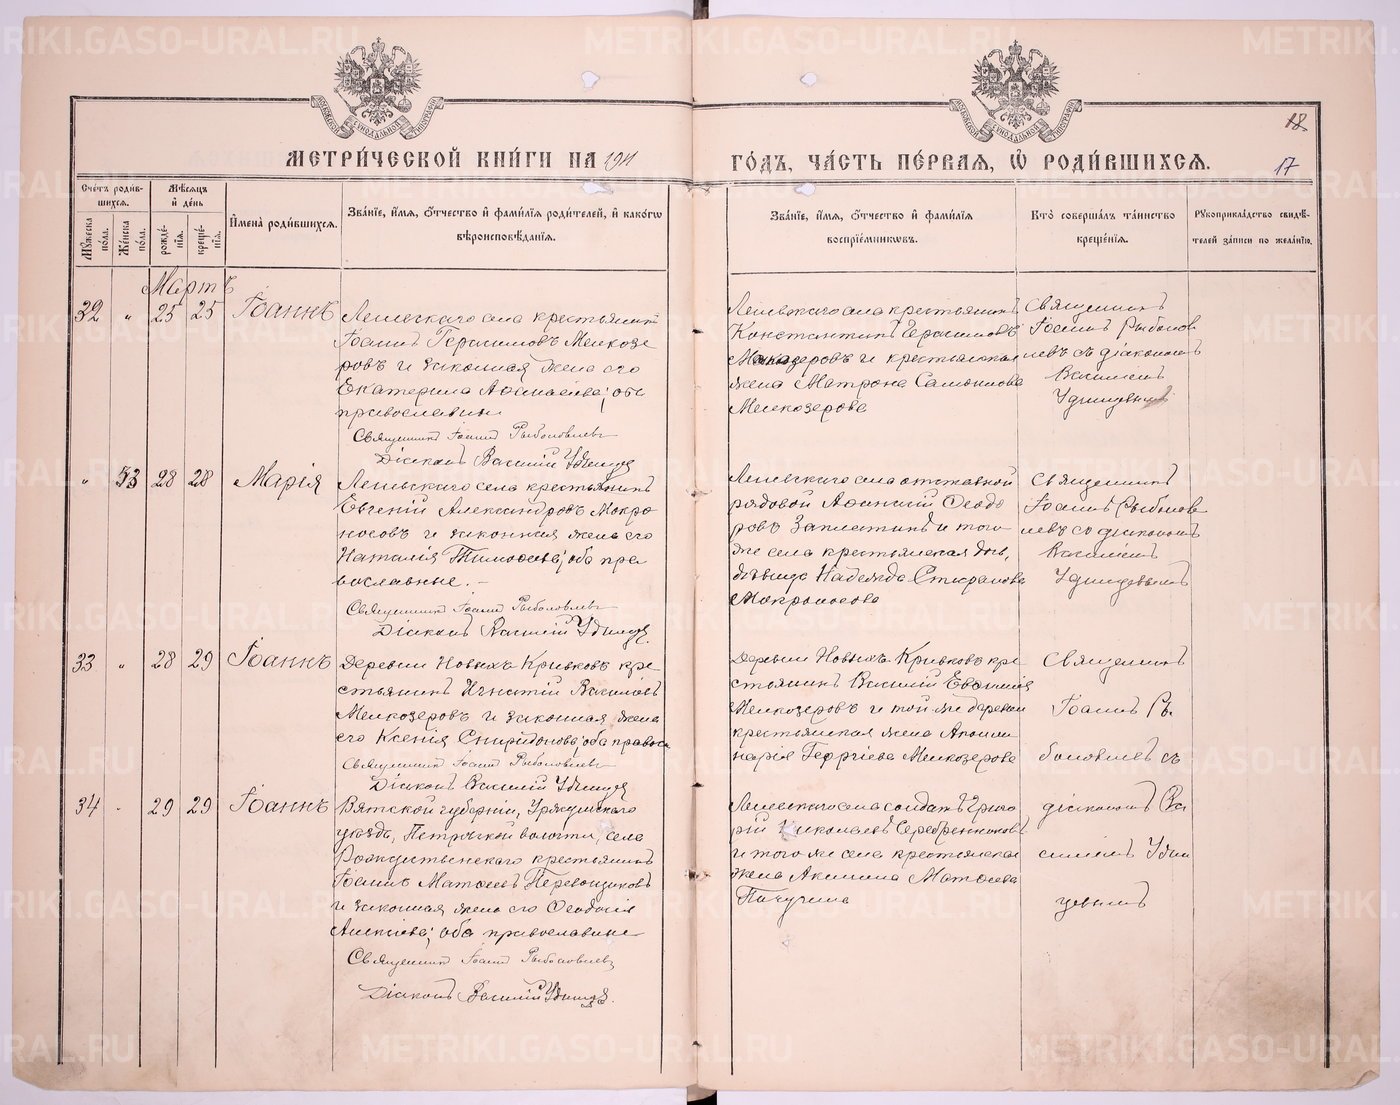 МЕТРИ́ЧЕСКОЙ КНИ́ГИ НА 1911
ГО́ДЪ, ЧА́СТЬ ПЕ́РВАЯ, Ѡ҆ РОДИ́ВШИХСЯ.
18
17
Сче́тъ роди́в-
шихся.
Мѣ́сяцъ
и҆ де́нь
Мꙋ́жеска по́ла.
Же́нска по́ла.
рожде́-
нїя.
креще́-
нїя.
И҆мена̀ роди́вшихся.
Зва́нїе, и҆́мя, ѻ҆́тчество и҆ фами́лїя роди́телей, и҆ како́гѡ
вѣроисповѣ́данїя.
Зва́нїе, и҆́мя, ѻ҆́тчество и҆ фами́лїя
воспрїе́мниковъ.
Кто̀ соверша́лъ та́инство
креще́нїя.
Рꙋкоприкла́дство свидѣ́-
телей за́писи по жела́нїю.
Мартъ
32 " 25 25 Іоаннъ
Леневскаго села крестьянинъ
Іоаннъ Герасимовъ Мелкозе
ровъ и законная жена его
Екатерина Аѳанасіева; оба
православные
Священникъ Іоаннъ Рыболовлевъ
Діаконъ Василій Удинцевъ
Леневскаго села крестьянинъ
Константинъ Герасимовъ
Мелкозеровъ и крестьянская
жена Матрона Самоилова
Мелкозерова
Священникъ
Іоаннъ Рыболов
левъ съ діакономъ
Василіемъ
Удинцевымъ
" 33 28 28 Марія
Леневскаго села крестьянинъ
Евгеній Александровъ Мокро
носовъ и законная жена его
Наталія Тимоѳеева; оба пра
вославные. –
Священникъ Іоаннъ Рыболовлевъ
Діаконъ Василій Удинцевъ.
Леневскаго села отставной
рядовой Аѳанасій Ѳеодо
ровъ Заплатинъ и того
же села крестьянская дочь,
дѣвица Надежда
Мокроносова
Священникъ
Іоаннъ Рыболов
левъ со діакономъ
Василіемъ
Удинцевымъ
33 " 28 29 Іоаннъ
Деревни Новыхъ Кривковъ кре
стьянинъ Игнатій Василіевъ
Мелкозеровъ и законная жена
его Ксенія Спиридонова; оба правосл
Священникъ Іоаннъ Рыболовлевъ
Діаконъ Василій Удинцевъ
Деревни Новыхъ Кривковъ кре
стьянинъ Василій Евѳиміевъ
Мелкозеровъ и той же деревни
крестьянская жена Аполли
нарія Георгіева Мелкозерова
Священникъ
Іоаннъ Ры
боловлевъ съ
34 " 29 29 Іоаннъ
Вятской губерніи, Уржумскаго
уѣзда, Петровской волости, села
Рождественскаго крестьянинъ
Іоаннъ Матѳеевъ Перевощиковъ
и законная жена его Ѳеодосія
оба православные
Священникъ Іоаннъ Рыболовлевъ
Діаконъ Василій Удинцевъ.
Леневскаго села солдатъ Григо
рій Николаевъ Серебренниковъ
и того же села крестьянская
жена Акилина Матѳеева
Пичугина
діакономъ Ва
силіемъ Удин
цевымъ